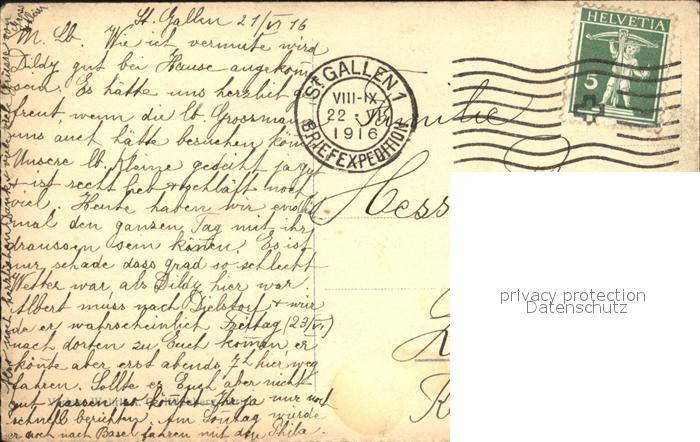 St. Gallen 21/VI 16
M. Lb. Wie ich vermute wird
Dildy gut bei Hause angekom̄
sein. Es hätte uns herzlich ge
freut, wenn die lb. Grossmam̄a
uns auch hätte besuchen kön̄
Unsere lb. Kleine gedeiht ja gut
+ ist recht lieb + schläft noch
viel. Heute haben wir endlich
mal den ganzen Tag mit ihr
draussen sein kön̄en. Es ist
nur schade dass grad so schlecht
Wetter war als Dildy hier war.
Albert muss nach Dielsdorf + wird
da er wahrscheinlich Freitag (23/VI)
nach dorten zu Euch kom̄en, er
kön̄te aber erst abends 7 h hier weg
fahren. Sollte es Euch aber nicht
gut passen so kön̄t Ihr ja nur noch
schnell berichten. Am Son̄tag würde
er noch nach Basel fahren mit den Phila.
ST GALLEN 1
VIII-IX
22 VI
1916
BRIEFEXPEDITION
HELVETIA
5
Familie
Hess
privacy protection
Datenschutz